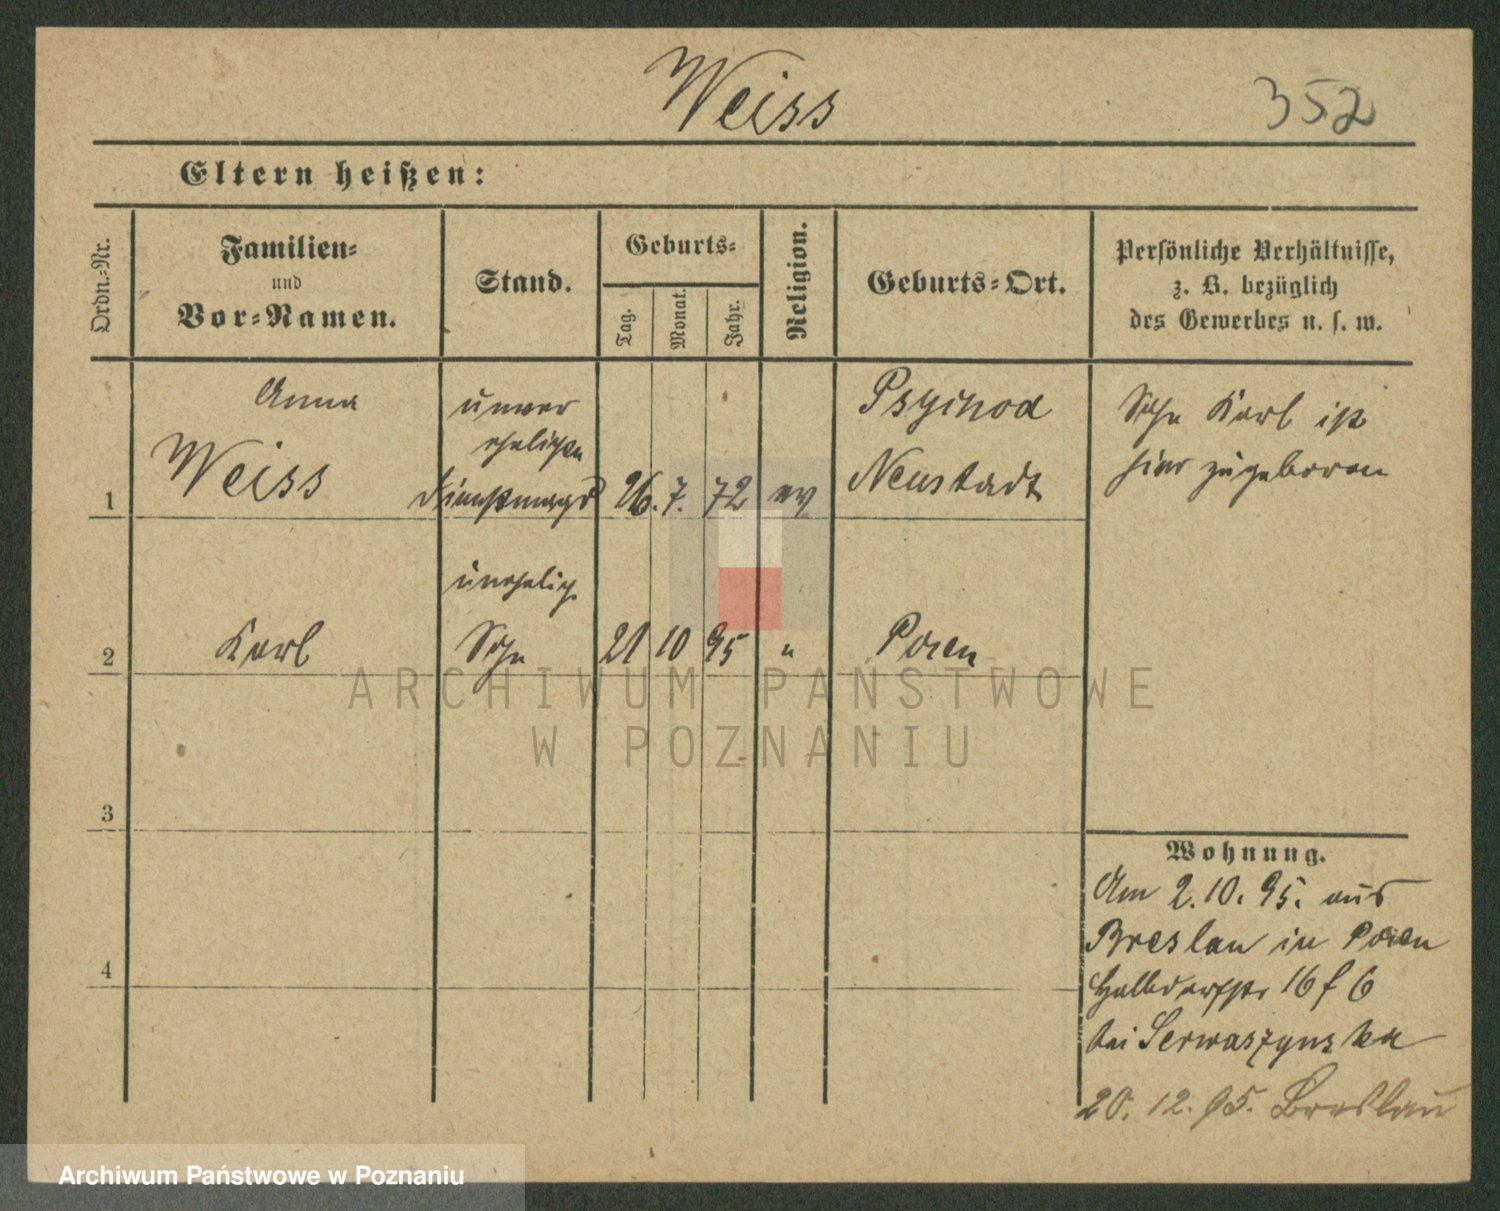 Weiss
352
Eltern heißen:
Ordn.-Nr.
Familien-
und
Vor-Namen.
Stand.
Geburts-
Tag.
Monat.
Jahr.
Religion.
Geburts-Ort.
Persönliche Verhältnisse,
z. B. bezüglich
des Gewerbes u. s. w.
Anna
Weiss
unver
ehelichte
Dienstmagd
1
26. 7. 72 ev
Neustadt
Sohn Karl ist
hier zugeboren
unehelich
2
Karl
Sohn
21 10 95 "
Posen
3
4
Wohnung.
Am 2.10.95. aus
Breslau in Posen
Halbdorfstr 16 f 6
bei Serwaszynska
20. 12. 95. Breslau
ARCHIWUM PAŃSTWOWE
W POZNANIU
Archiwum Państwowe w Poznaniu